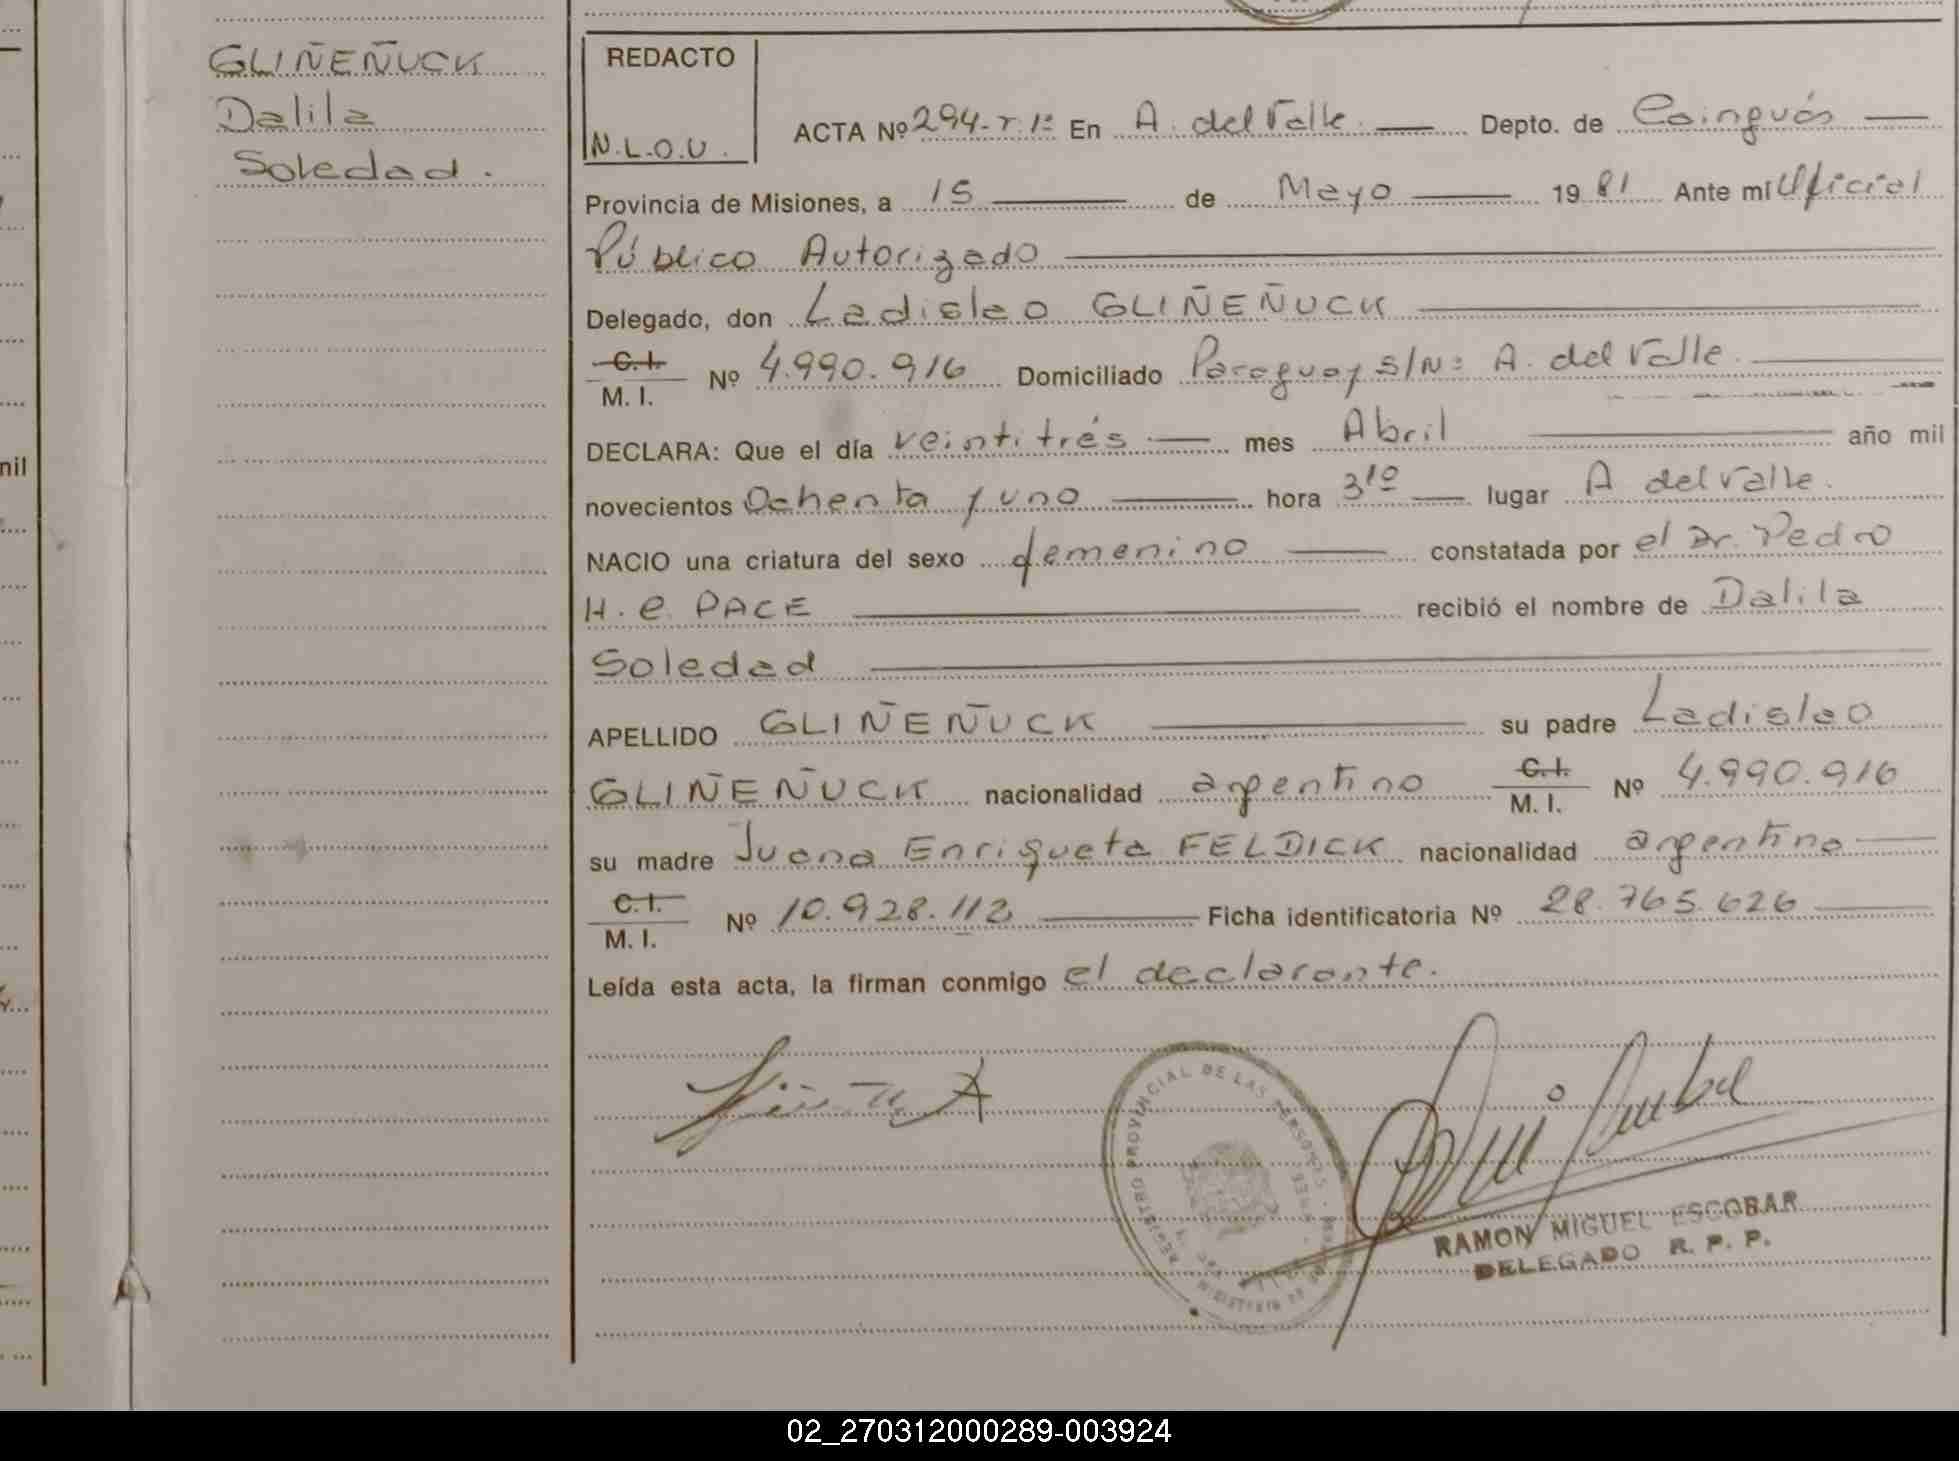 GLIÑEÑUCK
Dalila
Soledad.
REDACTO
N.L.O.U.
ACTA Nº 294-T.1º En A. del Valle Depto. de Cainguás
Provincia de Misiones, a 15 de Mayo 1981 Ante mi Oficial
Público Autorizado
Delegado, don Ladislao GLIÑEÑUCK
C.I.
M. I. Nº 4.990.916 Domiciliado Paraguay s/Nº A. del Valle.
DECLARA: Que el día veintitrés mes Abril año mil
novecientos Ochenta y uno hora 3 1º lugar A del Valle.
NACIO una criatura del sexo femenino constatada por el Dr. Pedro
H. C. PACE recibió el nombre de Dalila
Soledad
APELLIDO GLIÑEÑUCK su padre Ladislao
GLIÑEÑUCK nacionalidad argentino C.I.
M. I. Nº 4.990.916
su madre Juana Enriqueta FELDICK nacionalidad argentina
C.I.
M. I. Nº 10.928.112 Ficha identificatoria Nº 28.765.626
Leída esta acta, la firman conmigo el declarante.
REGISTRO PROVINCIAL DE LAS PERSONAS
RAMON MIGUEL ESCOBAR
DELEGADO R. P. P.
nil
02_270312000289-003924